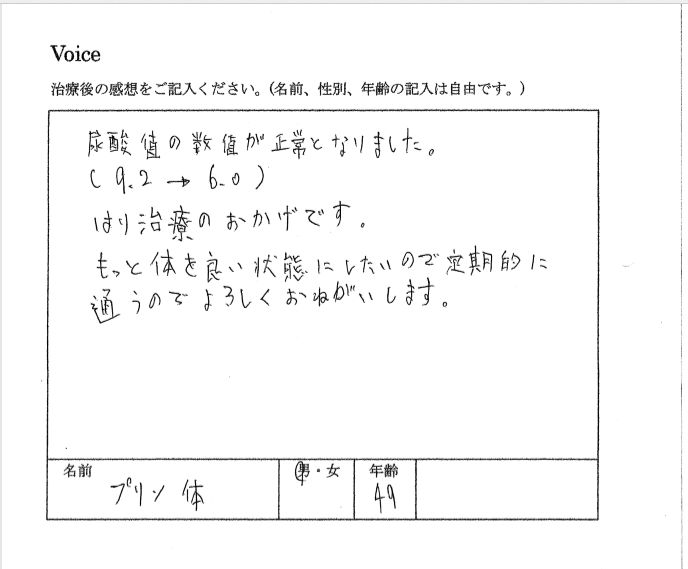 Voice
治療後の感想をご記入ください。(名前、性別、年齢の記入は自由です。)
尿酸値の数値が正常となりました。
(9.2 → 6.0)
はり治療のおかげです。
もっと体を良い状態にしたいので定期的に
通うのでよろしくおねがいします。
名前 男・女 年齢
プリン体 49